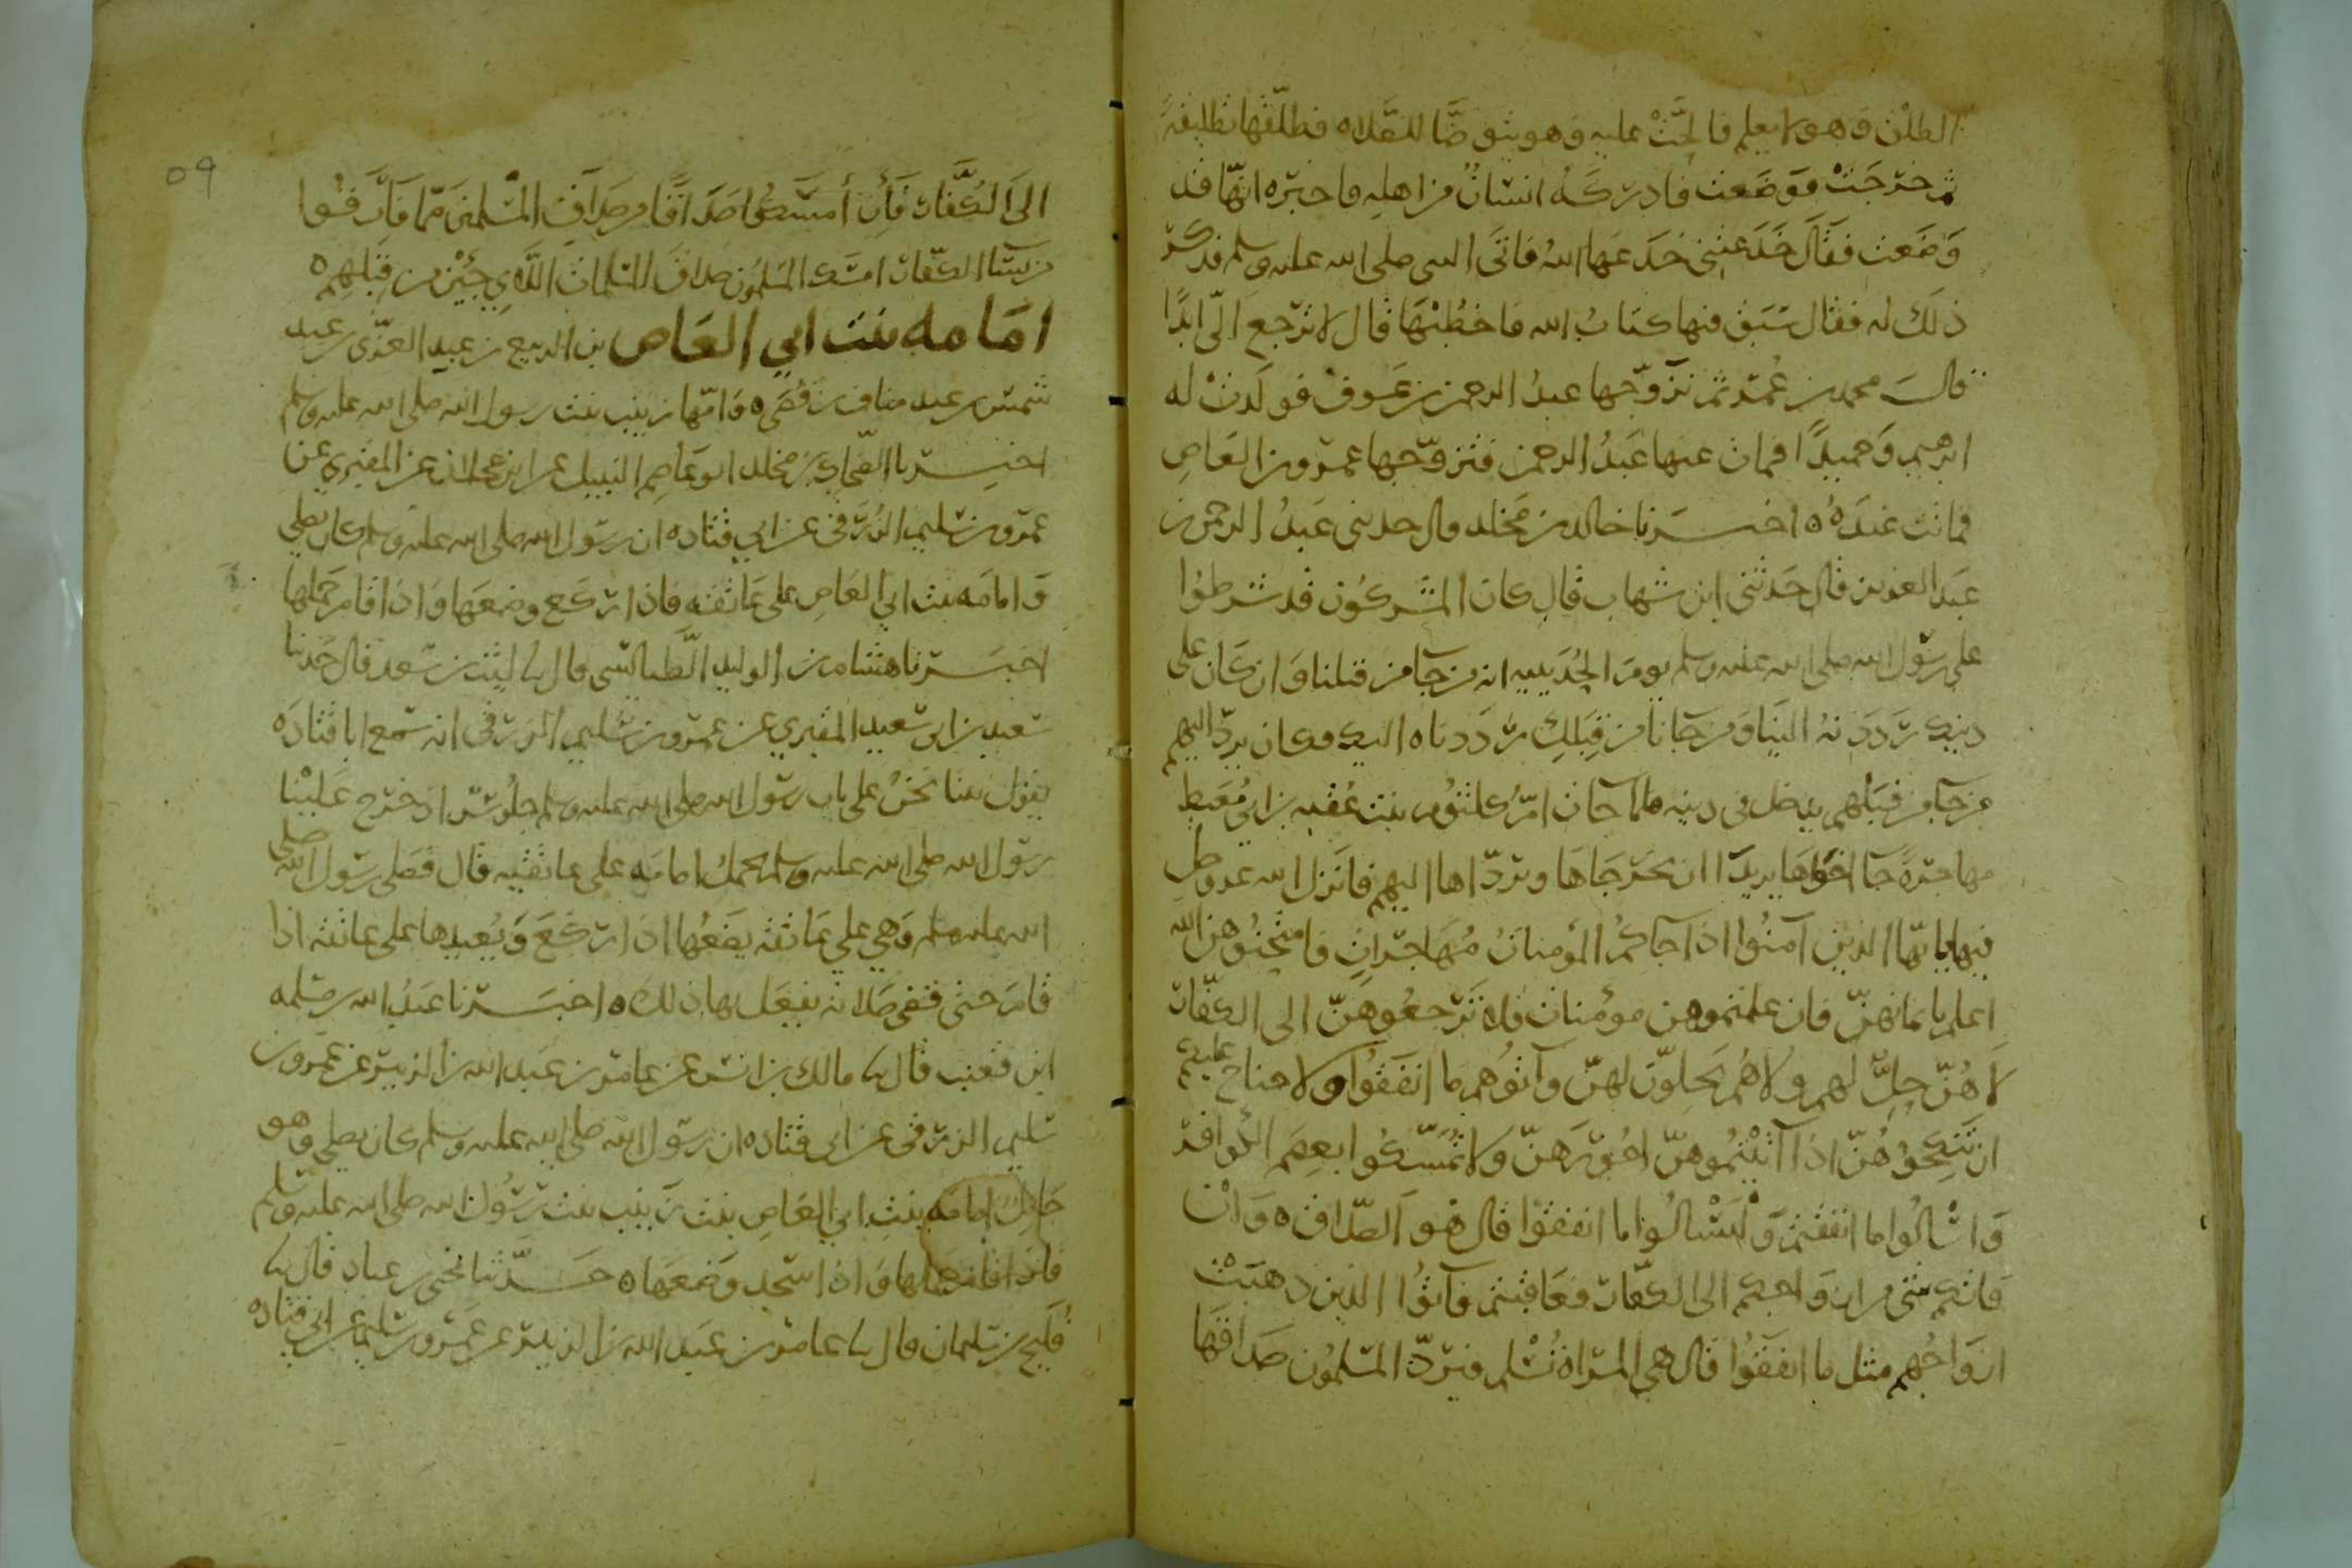 الطلق وهو لا يعلم فالحّت عليه وهو يتوضّا للصّلاه فطلّقها تطليقةً
ثم خرجت فوضعت فادركه انسان من اهله فاخبره انّها قد
وضعت فقال خدعتني خدعها الله فاتى النبي صلى الله عليه وسلم فذكر
ذلك له فقال سبق فيها كتاب الله فاخطبها قال لا ترجع اليّ ابدًا
قال محمد بن عمر ثم تزوّجها عبد الرحمن بن عوف فولدت له
ابرهيم وحميدًا فمات عنها عبد الرحمن فتزوّجها عمرو بن العاص
فماتت عنده ه اخبرنا خالد بن مخلد قال حدثني عبد الرحمن بن
عبد العزيز قال حدثني ابن شهاب قال كان المشركون قد شرطوا
على رسول الله صلى الله عليه وسلم يوم الحديبيه انه من جا من قبلنا وان كان على
دينك رددته الينا ومن جانا من قبلك رددناه اليك فكان يردّ اليهم
من جا من قبلهم يدخل في دينه فلما جات امّ كلثوم بنت عقبه بن ابي معيط
مهاجرةً جا اخواها يريدا ان يخرجاها ويردّاها اليهم فانزل الله عز وجل
فيها يايّها الذين آمنوا اذا جاكم المؤمنات مهاجرات فامتحنوهن الله
اعلم بايمانهنّ فان علمتموهن مؤمنات فلا ترجعوهنّ الى الكفّار
لا هنّ حلّ لهم ولا هم يحلوّن لهنّ وآتوهم ما انفقوا ولا جناح عليكم
ان تنكحوهنّ اذا آتيتموهنّ اجورهنّ ولا تمسّكوا بعصم الكوافر
واسالوا ما انفقتم وليسالوا ما انفقوا قال هو الصّداق ه وان
فاتكم شي من ازواجكم الى الكفّار فعاقبتم فآتوا الذين ذهبت
ازواجهم مثل ما انفقوا قال هي المراة تسلم فيردّ المسلمون صداقها
٥٩
الى الكفّار فان امسكوا صداقًا من صداق المسلمين مما فارقوا
من نسا الكفّار امسك المسلمون صداق المسلمات اللاي جئن من قبلهم ه
امامه بنت ابي العاص بن الربيع بن عبد العزّى بن عبد
شمس بن عبد مناف بن قصي ه وامّها زينب بنت رسول الله صلى الله عليه وسلم
اخبرنا الضحاك بن مخلد ابو عاصم النبيل عن ابن عجلان عن المقبري عن
عمرو بن سليم الزرقي عن ابي قتاده ان رسول الله صلى الله عليه وسلم كان يصلي
وامامه بنت ابي العاص على عاتقه فاذا ركع وضعها واذا قام حملها
اخبرنا هشام بن الوليد الطيالسي قال ثنا ليث بن سعد قال حدثنا
سعيد بن ابي سعيد المقبري عن عمرو بن سليم الزرقي انه سمع ابا قتاده
يقول بينا نحن على باب رسول الله صلى الله عليه وسلم جلوسًا اذ خرج علينا
رسول الله صلى الله عليه وسلم يحمل امامه على عاتقيه قال فصلى رسول الله صلى
الله عليه وسلم وهي على عاتقه يضعها اذا ركع ويعيدها على عاتقه اذا
قام حتى قضى صلاته يفعل بها ذلك ه اخبرنا عبد الله بن مسلمه
ابن قعنب قال ثنا مالك بن انس عن عامر بن عبد الله بن الزبير عن عمرو بن
سليم الزرقي عن ابي قتاده ان رسول الله صلى الله عليه وسلم كان يصلي وهو
حامل امامه بنت ابي العاص بنت زينب بنت رسول الله صلى الله عليه وسلم
فاذا قام حملها واذا سجد وضعها ه حدّثنا يحيى بن عباد قال ثنا
فليح بن سليمان قال ثنا عامر بن عبد الله بن الزبير عن عمرو بن سليم عن ابي قتاده